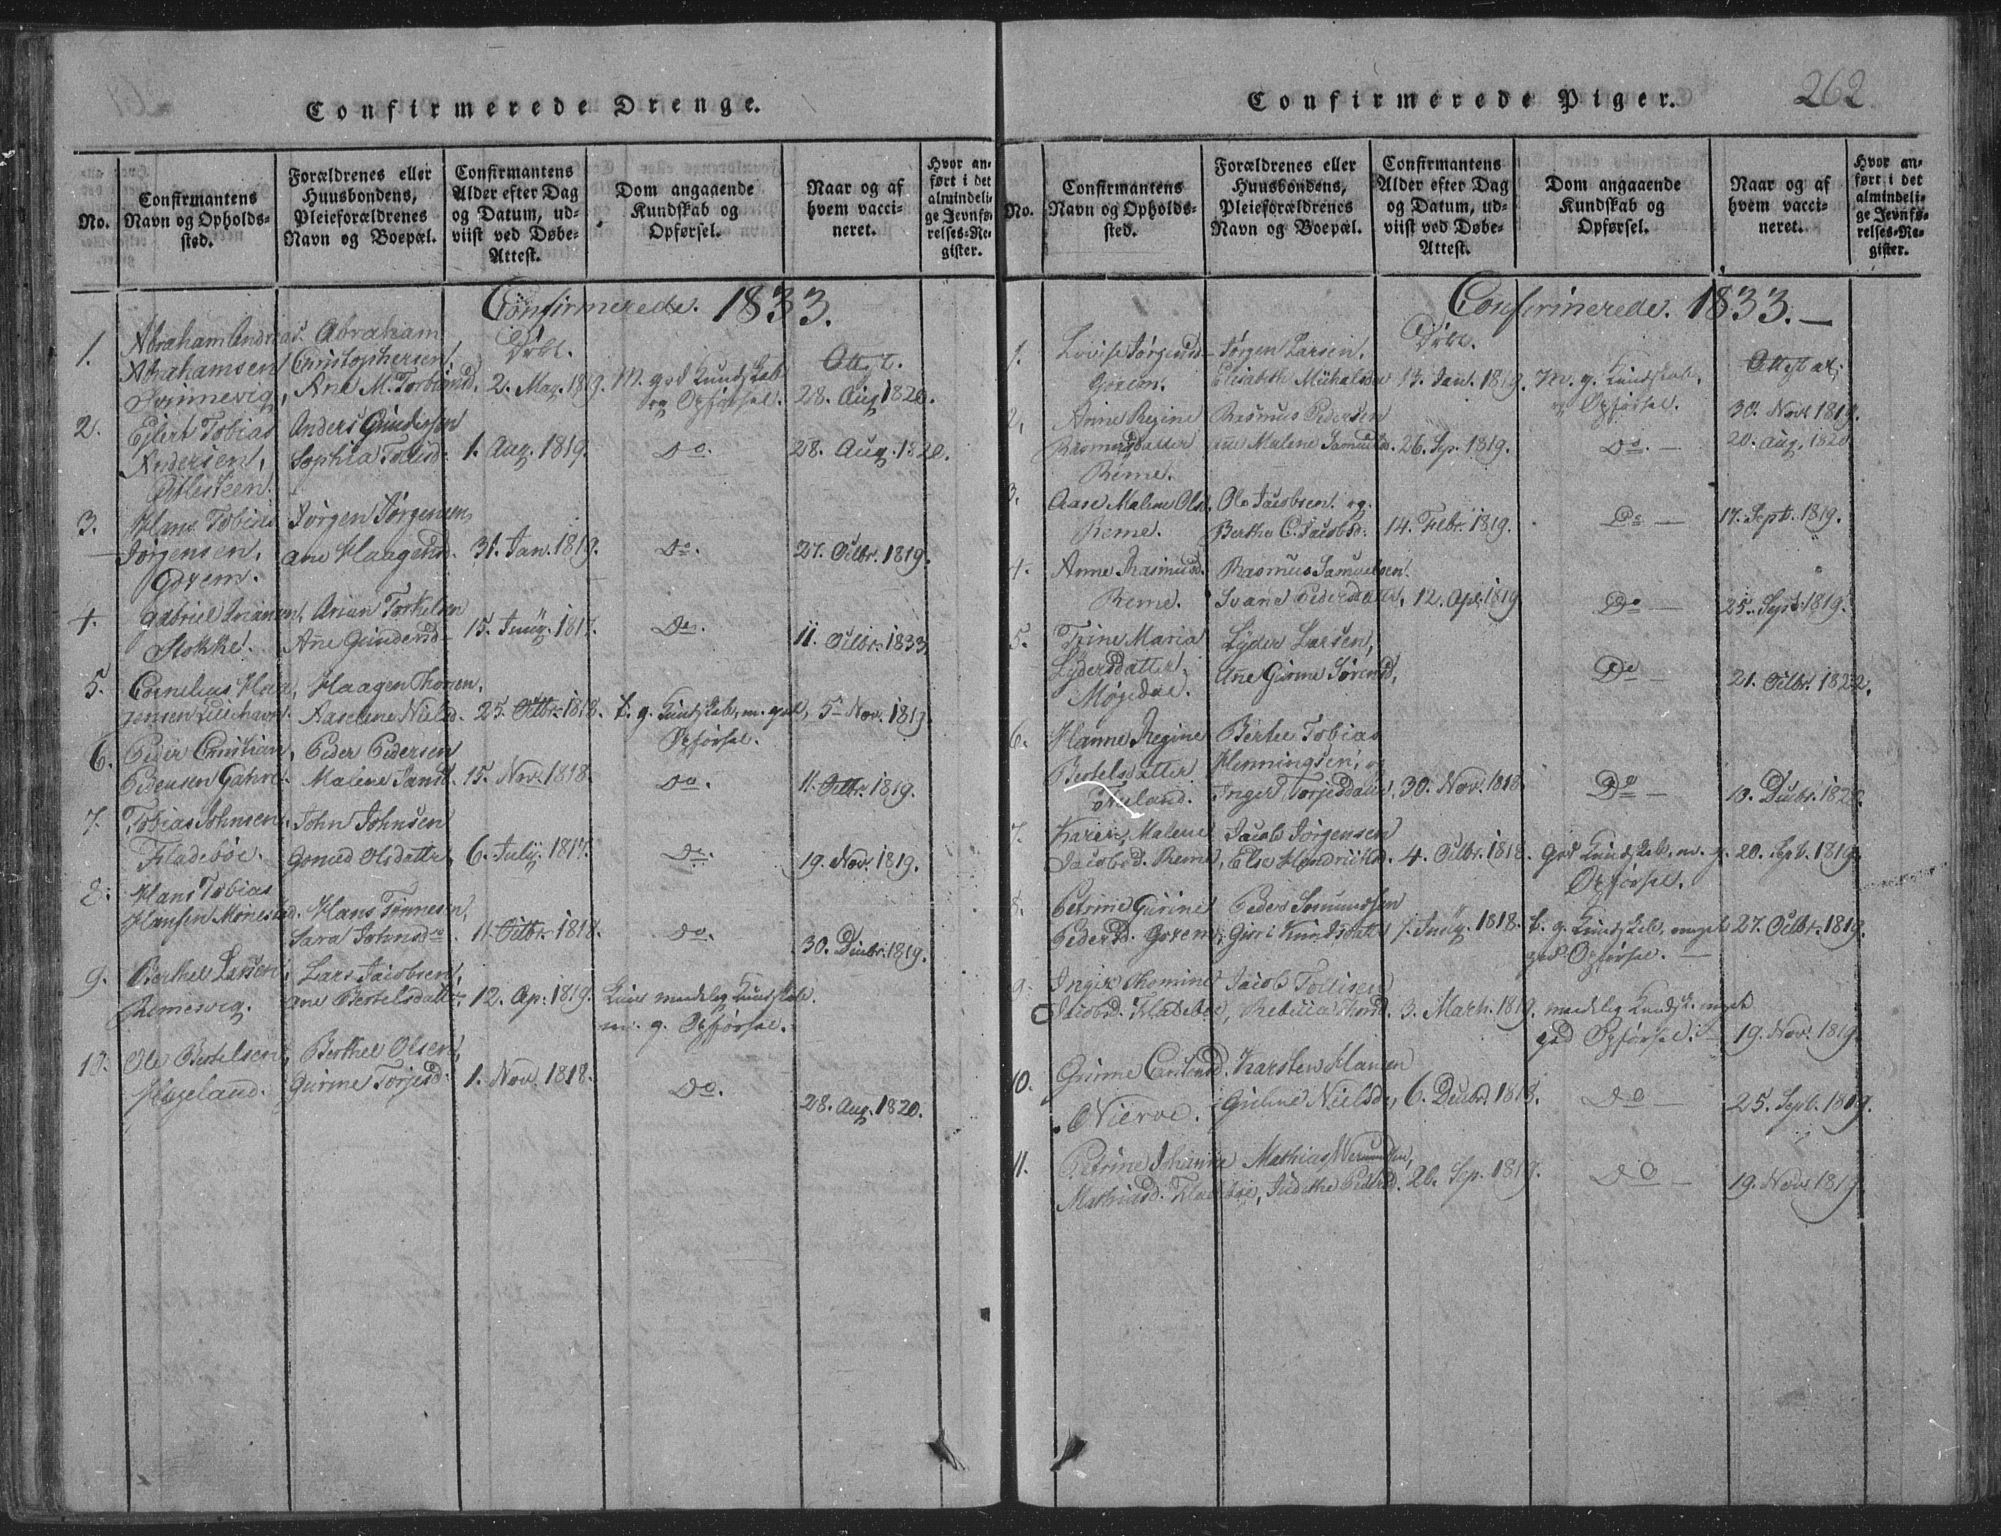 Confirmerede Drenge.
No.
Confirmantens
Navn og Opholds-
sted.
Forældrenes eller
Huusbondens,
Pleieforældrenes
Navn og Boepæl.
Confirmantens
Alder efter Dag
og Datum, ud-
viist ved Døbe-
Attest.
Dom angaaende
Kundskab og
Opførsel.
Naar og af
hvem vacci-
neret.
Hvor an-
ført i det
almindeli-
ge Jevnfø-
relses-Re-
gister.
Confirmerede. 1833.
Døbt.
Attest.
1.
Abraham Andreas
Abrahamsen
Svinnevig,
Abraham
Christophersen,
Ane M. Torbiørnsd.
2. May. 1819.
M. god Kundskab
og Opførsel.
28. Aug 1820.
2.
Ejlert Tobias
Andersen,
Anders Gundersen
Sophia Tobiasd.
1. Aug. 1819.
Do.
28. Aug. 1820.
3.
Hans Tobias
Jørgensen,
Jørgen Jørgensen,
Ane Haagensd.
31. Jan. 1819.
Do.
27. Octbr. 1819.
4.
Gabriel Ariansen,
Stokke.
Arian Torkelsen
Ane Gundersd.
15. Juny. 1817.
Do.
11. Octbr. 1833
5.
Cornelius Haa-
gensen Lillehavn.
Haagen Thorsen,
Aaselene Nielsd.
25. Octbr. 1818.
t. g. Kundskab, m. god
Opførsel.
5. Nov. 1819.
6.
Peder Christian,
Pedersen
Peder Pedersen
Malene
15. Nov. 1818.
Do
11. Octbr. 1819.
7.
Tobias Johnsen,
Fladebøe.
John Johnsen
Gonild Olsdatter
6. July. 1817.
Do.
19. Nov. 1819.
8.
Hans Tobias
Hansen Mønestad.
Hans Tønnesen,
Sara Johnsd.
11. Octbr. 1818.
Do.
30. Decbr. 1819.
9.
Berthel Larsen,
Remesvig.
Lars Jacobsen,
Ane Bertelsdatter
12. Ap. 1819.
Kuns maadelig Kundskab.
m. g. Opførsel.
10.
Ole Bertelsen,
Hageland.
Berthel Olsen,
Gurine Torjesd.
1. Nov. 1818.
Do.
28. Aug. 1820.
Confirmerede Piger.
262.
No.
Confirmantens
Navn og Opholds-
sted.
Forældrenes eller
Huusbondens,
Pleieforældrenes
Navn og Boepæl.
Confirmantens
Alder efter Dag
og Datum, ud-
viist ved Døbe-
Attest.
Dom angaaende
Kundskab og
Opførsel.
Naar og af
hvem vacci-
neret.
Hvor an-
ført i det
almindeli-
ge Jevnfø-
relses-Re-
gister.
Confirmerede. 1833.—
Døbt.
1.
Lovise Jørgensd.
Jørgen Larsen.
Elisabeth Michalsd.
13. Jan. 1819.
M. g. Kundskab,
og Opførsel.
30. Nov. 1819.
2.
Anne Regine
Rasmusdatter
Reme.
Rasmus Pedersen
Malene Samuelsd.
26. Sp. 1819.
Do. —
20. Aug. 1820
3.
Aase Malene Olsd.
Reme.
Ole Jacobsen og
Berthe C. Jacobsd.
14. Febr. 1819.
Do —
17. Sept. 1819.
4.
Anne Rasmusd.
Reme.
Rasmus Samuelsen.
Svane Pedersdatter,
12. Apl. 1819.
Do —
25. Sept. 1819.
5.
Trine Maria
Lydersdatter
Lyder Larsen,
Ane Gurine Sørensd.
Do —
21. Octbr. 1822.
6.
Hanne Regine
Bertelsdatter
Berthe Tobias
Henningsen, og
Inger Torjesdatter
30. Nov. 1818.
Do —
13. Decbr. 1820.
7.
Karen Malene
Jacobsd. Reme,
Jacob Jørgensen
Else Hendriksd.
4. Octbr. 1818.
god Kundskab, m. g.
Opførsel.
20. Sept. 1819.
8.
Petrine Gurine
Pedersd.
Peder Somundsen
Giøri Knudsdatter
1. Juny. 1818.
t. g. Kundskab, meget
god Opførsel. —
27. Octbr. 1819.
9.
Inger Thomine
Jacobsd. Fladebøe,
Jacob Tollisen
Rebecca Thorsd.
3. March. 1819.
maadelig Kundsk. meget
god Opførsel.
19. Nov. 1819.
10.
Gurine Carstensd.
Karsten Hansen
Nielsd.
6. Decbr. 1818.
Do —
25. Sept. 1819.
11.
Petrine Johanne
Mathiasd. Fladebøe,
Mathias
Judithe Pedersd.
26. Sep. 1819.
Do —
19. Nov. 1819.